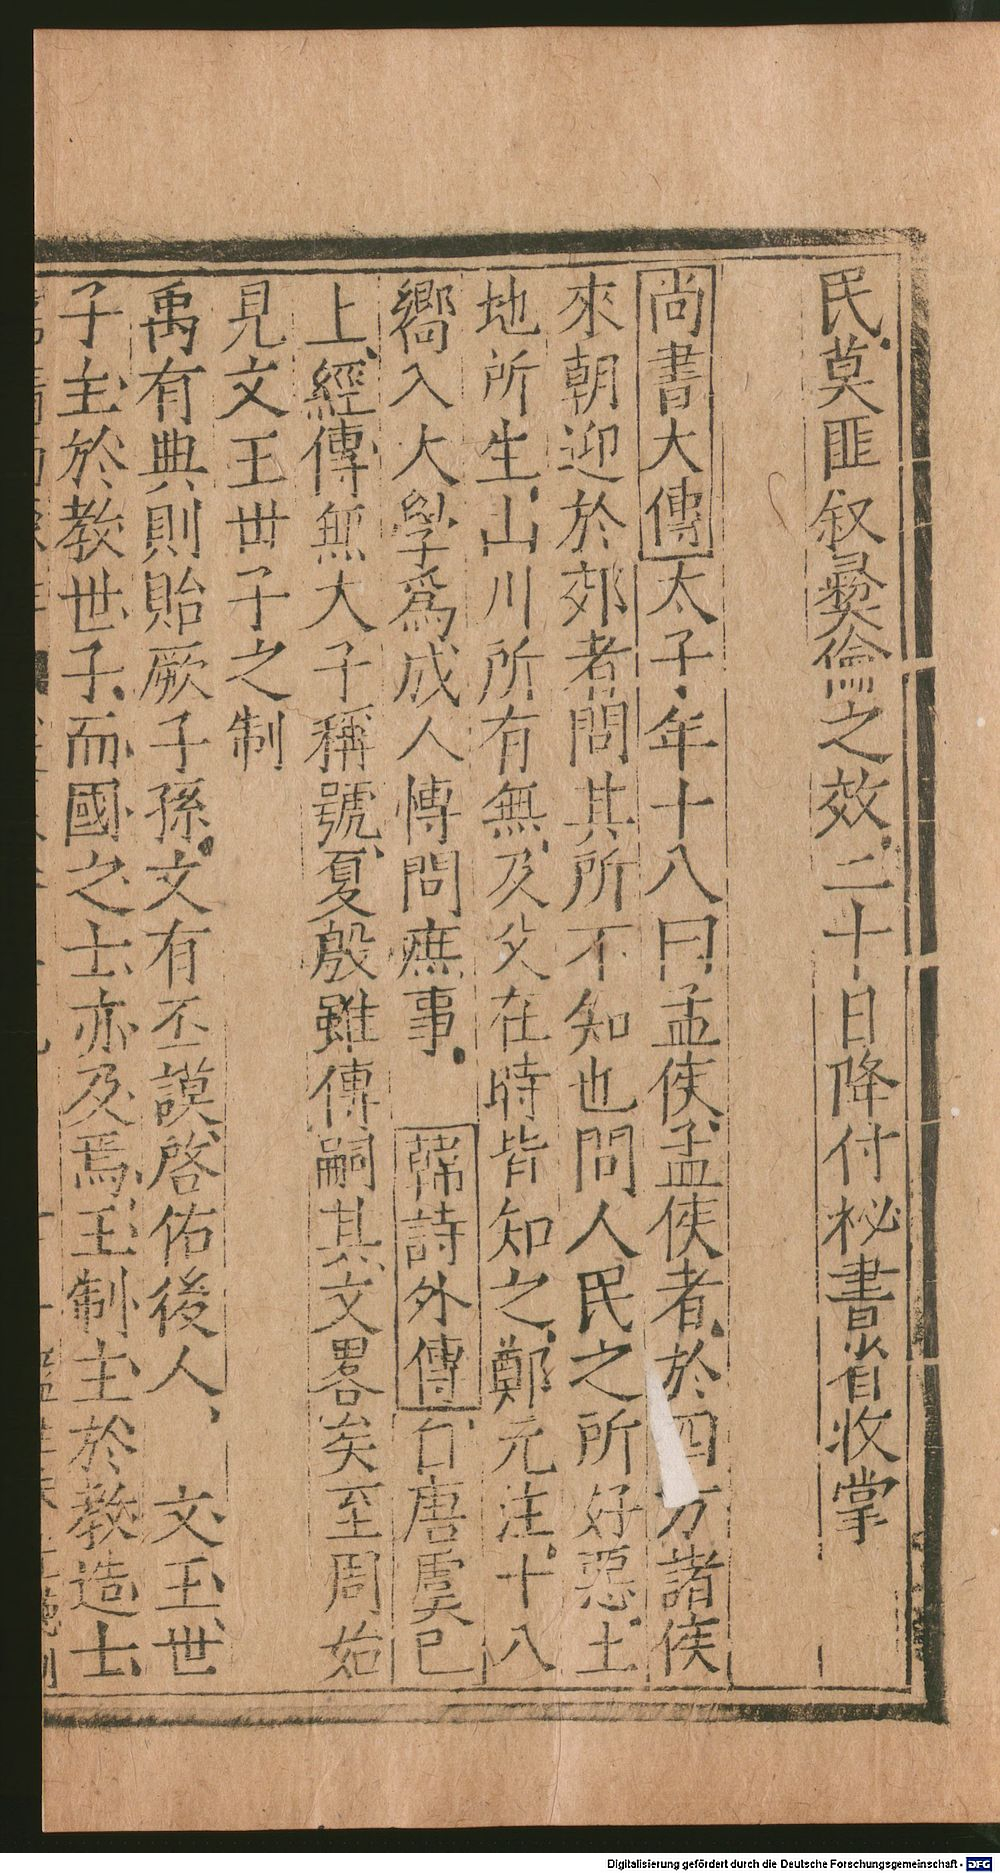 民莫匪叙彝倫之效二十日降付秘書省收掌
尚書大傳太子年十八曰孟侯孟侯者於四方諸侯
來朝迎於郊者問其所不知也問人民之所好惡土
地所生山川所有無及父在時皆知之鄭元注十八
嚮入大學爲成人博問庶事 韓詩外傳曰唐虞已
上經傳無太子稱號夏殷雖傳嗣其文畧矣至周始
見文王世子之制
禹有典則貽厥子孫文有丕謨啓佑後人 文王世
子主於教世子而國之士亦及焉王制主於教造士
Digitalisierung gefördert durch die Deutsche Forschungsgemeinschaft - DFG